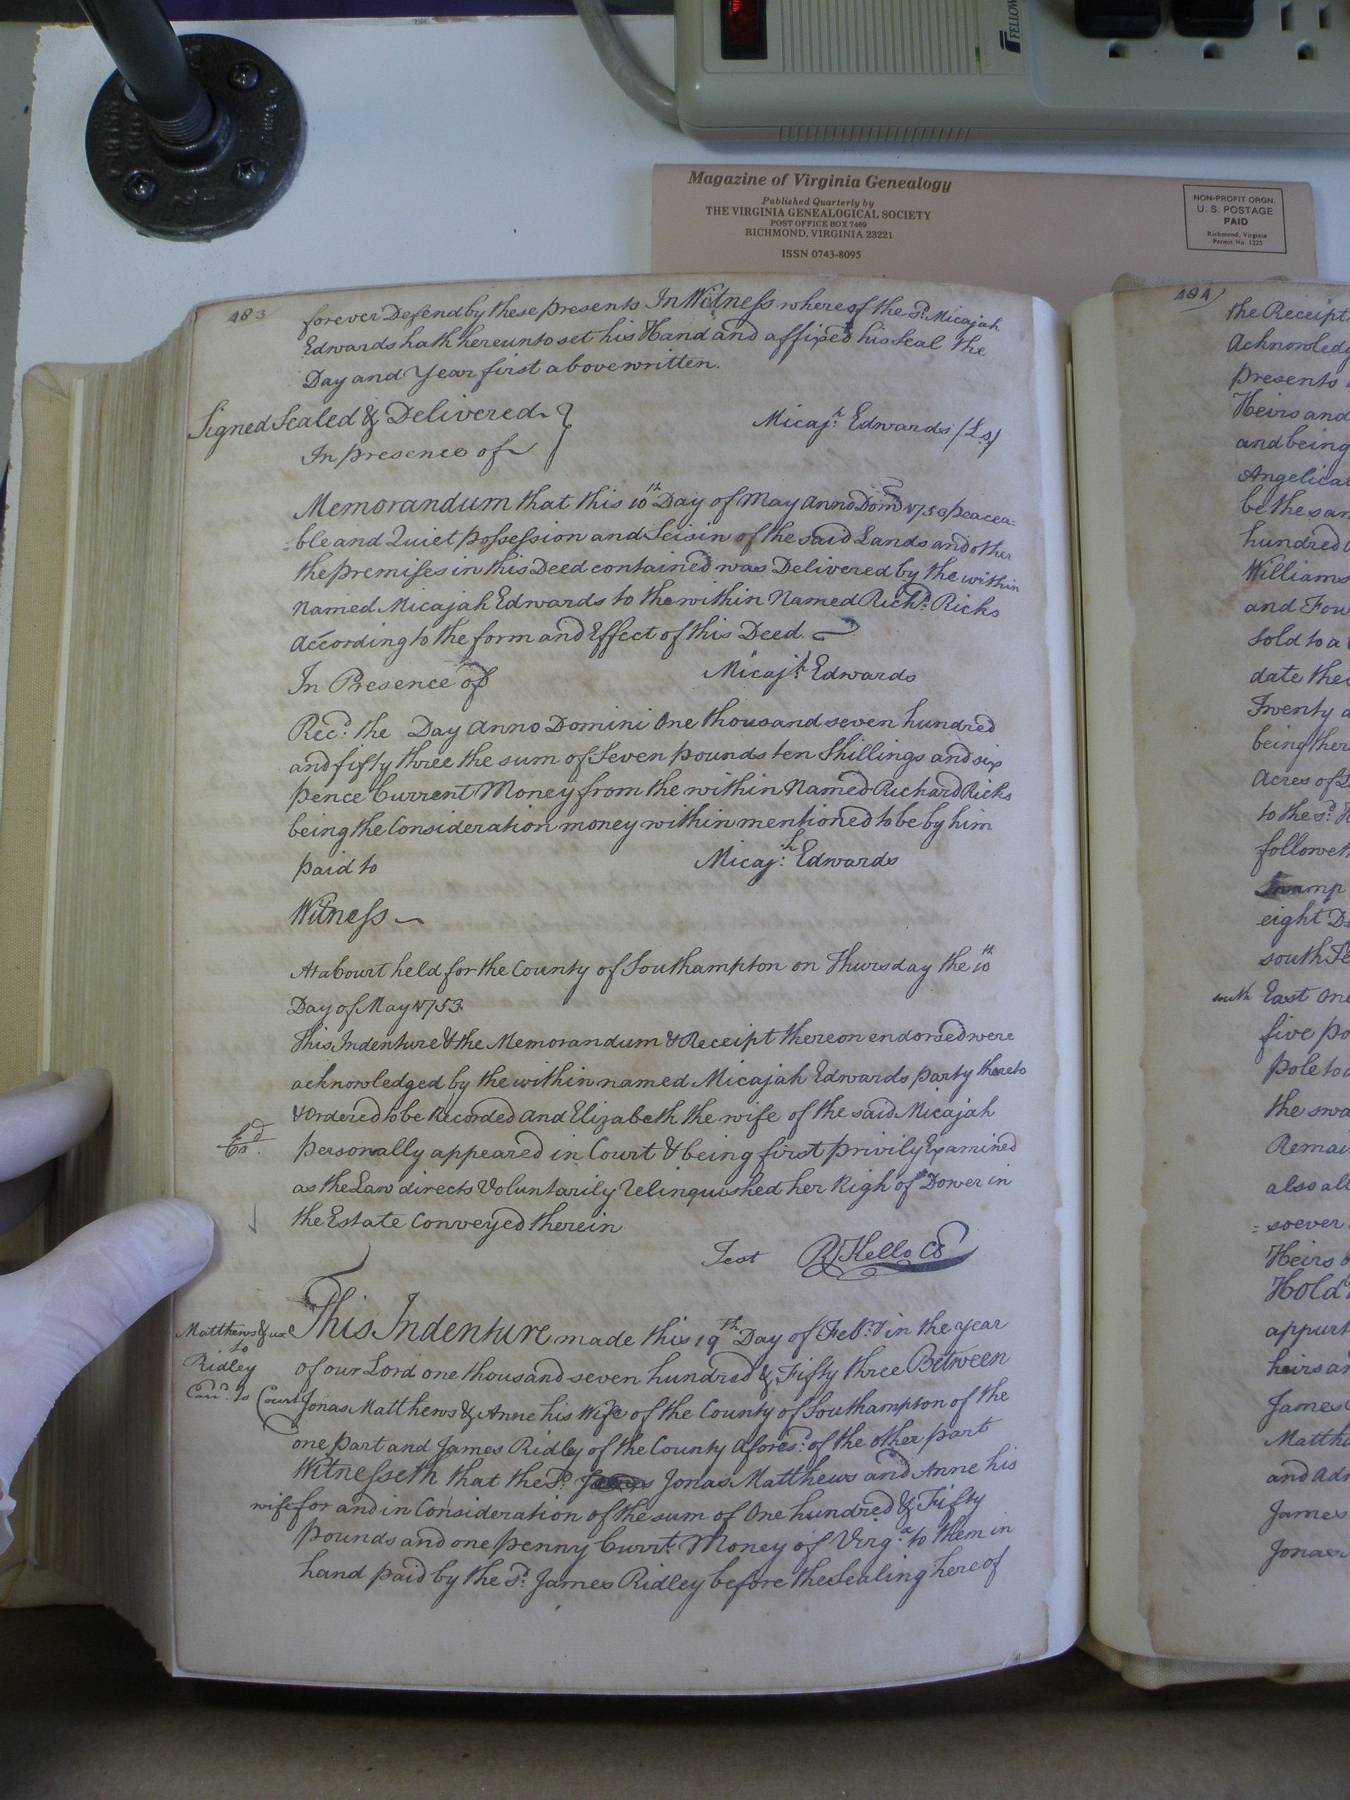 FELLOW
Magazine of Virginia Genealogy
Published Quarterly by
THE VIRGINIA GENEALOGICAL SOCIETY
POST OFFICE BOX 7469
RICHMOND, VIRGINIA 23221
ISSN 0743-8095
NON-PROFIT ORGN.
U. S. POSTAGE
PAID
Richmond, Virginia
Permit No. 1225
483
forever Defend by these presents In Witness whereof the sd. Micajah
Edwards hath hereunto set his Hand and affixed his Seal the
Day and Year first above written.
Signed Sealed & Delivered
Micajh. Edwards (Ls)
In presence of
Memorandum that this 10th Day of May Anno Dom 1753 peacea=
=ble and Quiet possession and Seisin of the said Lands and other
the premises in this Deed contained was Delivered by the within
Named Micajah Edwards to the within Named Richd. Ricks
according to the form and Effect of this Deed.
In Presence of
Micajh Edwards
Recd. the Day Anno Domini One thousand seven hundred
and fifty three the sum of Seven pounds ten Shillings and six
pence Current Money from the within Named Richard Ricks
being the Consideration money within mentioned to be by him
paid to
Micajh. Edwards
Witness
At a Court held for the County of Southampton on Thursday the 10th
Day of May 1753
This Indenture & the Memorandum & Receipt thereon endorsed were
acknowledged by the within named Micajah Edwards party thereto
& Ordered to be Recorded and Elizabeth the wife of the said Micajah
personally appeared in Court & being first privily Examined
as the Law directs Voluntarily relinquished her Righ of Dower in
the Estate Conveyed therein
Test R Kello CC
Matthews & ux
to
Ridley
This Indenture made this 19th Day of Febry in the year
of our Lord one thousand seven hundred & Fifty three Between
Jonas Matthews & Anne his Wife of the County of Southampton of the
one part and James Ridley of the County aforesd. of the other part
Witnesseth that the sd. Jonas Matthews and Anne his
wife for and in Consideration of the sum of One hundred & Fifty
pounds and one penny Currt. Money of Virga. to them in
hand paid by the sd. James Ridley before the Sealing hereof
484
the Receipt
Acknowledg
presents
Heirs and
and being
Angelica
be the sam
hundred
Williams
and Fou
Sold to a
date the
Twenty a
being ther
Acres of L
to the sd. H
followeth
Swamp
eight De
south Fe
south East One
five po
pole to
the swa
Remai
also all
=soever
Heirs
Hold
appurt
heirs an
James
Matth
and Adm
James
Jonas